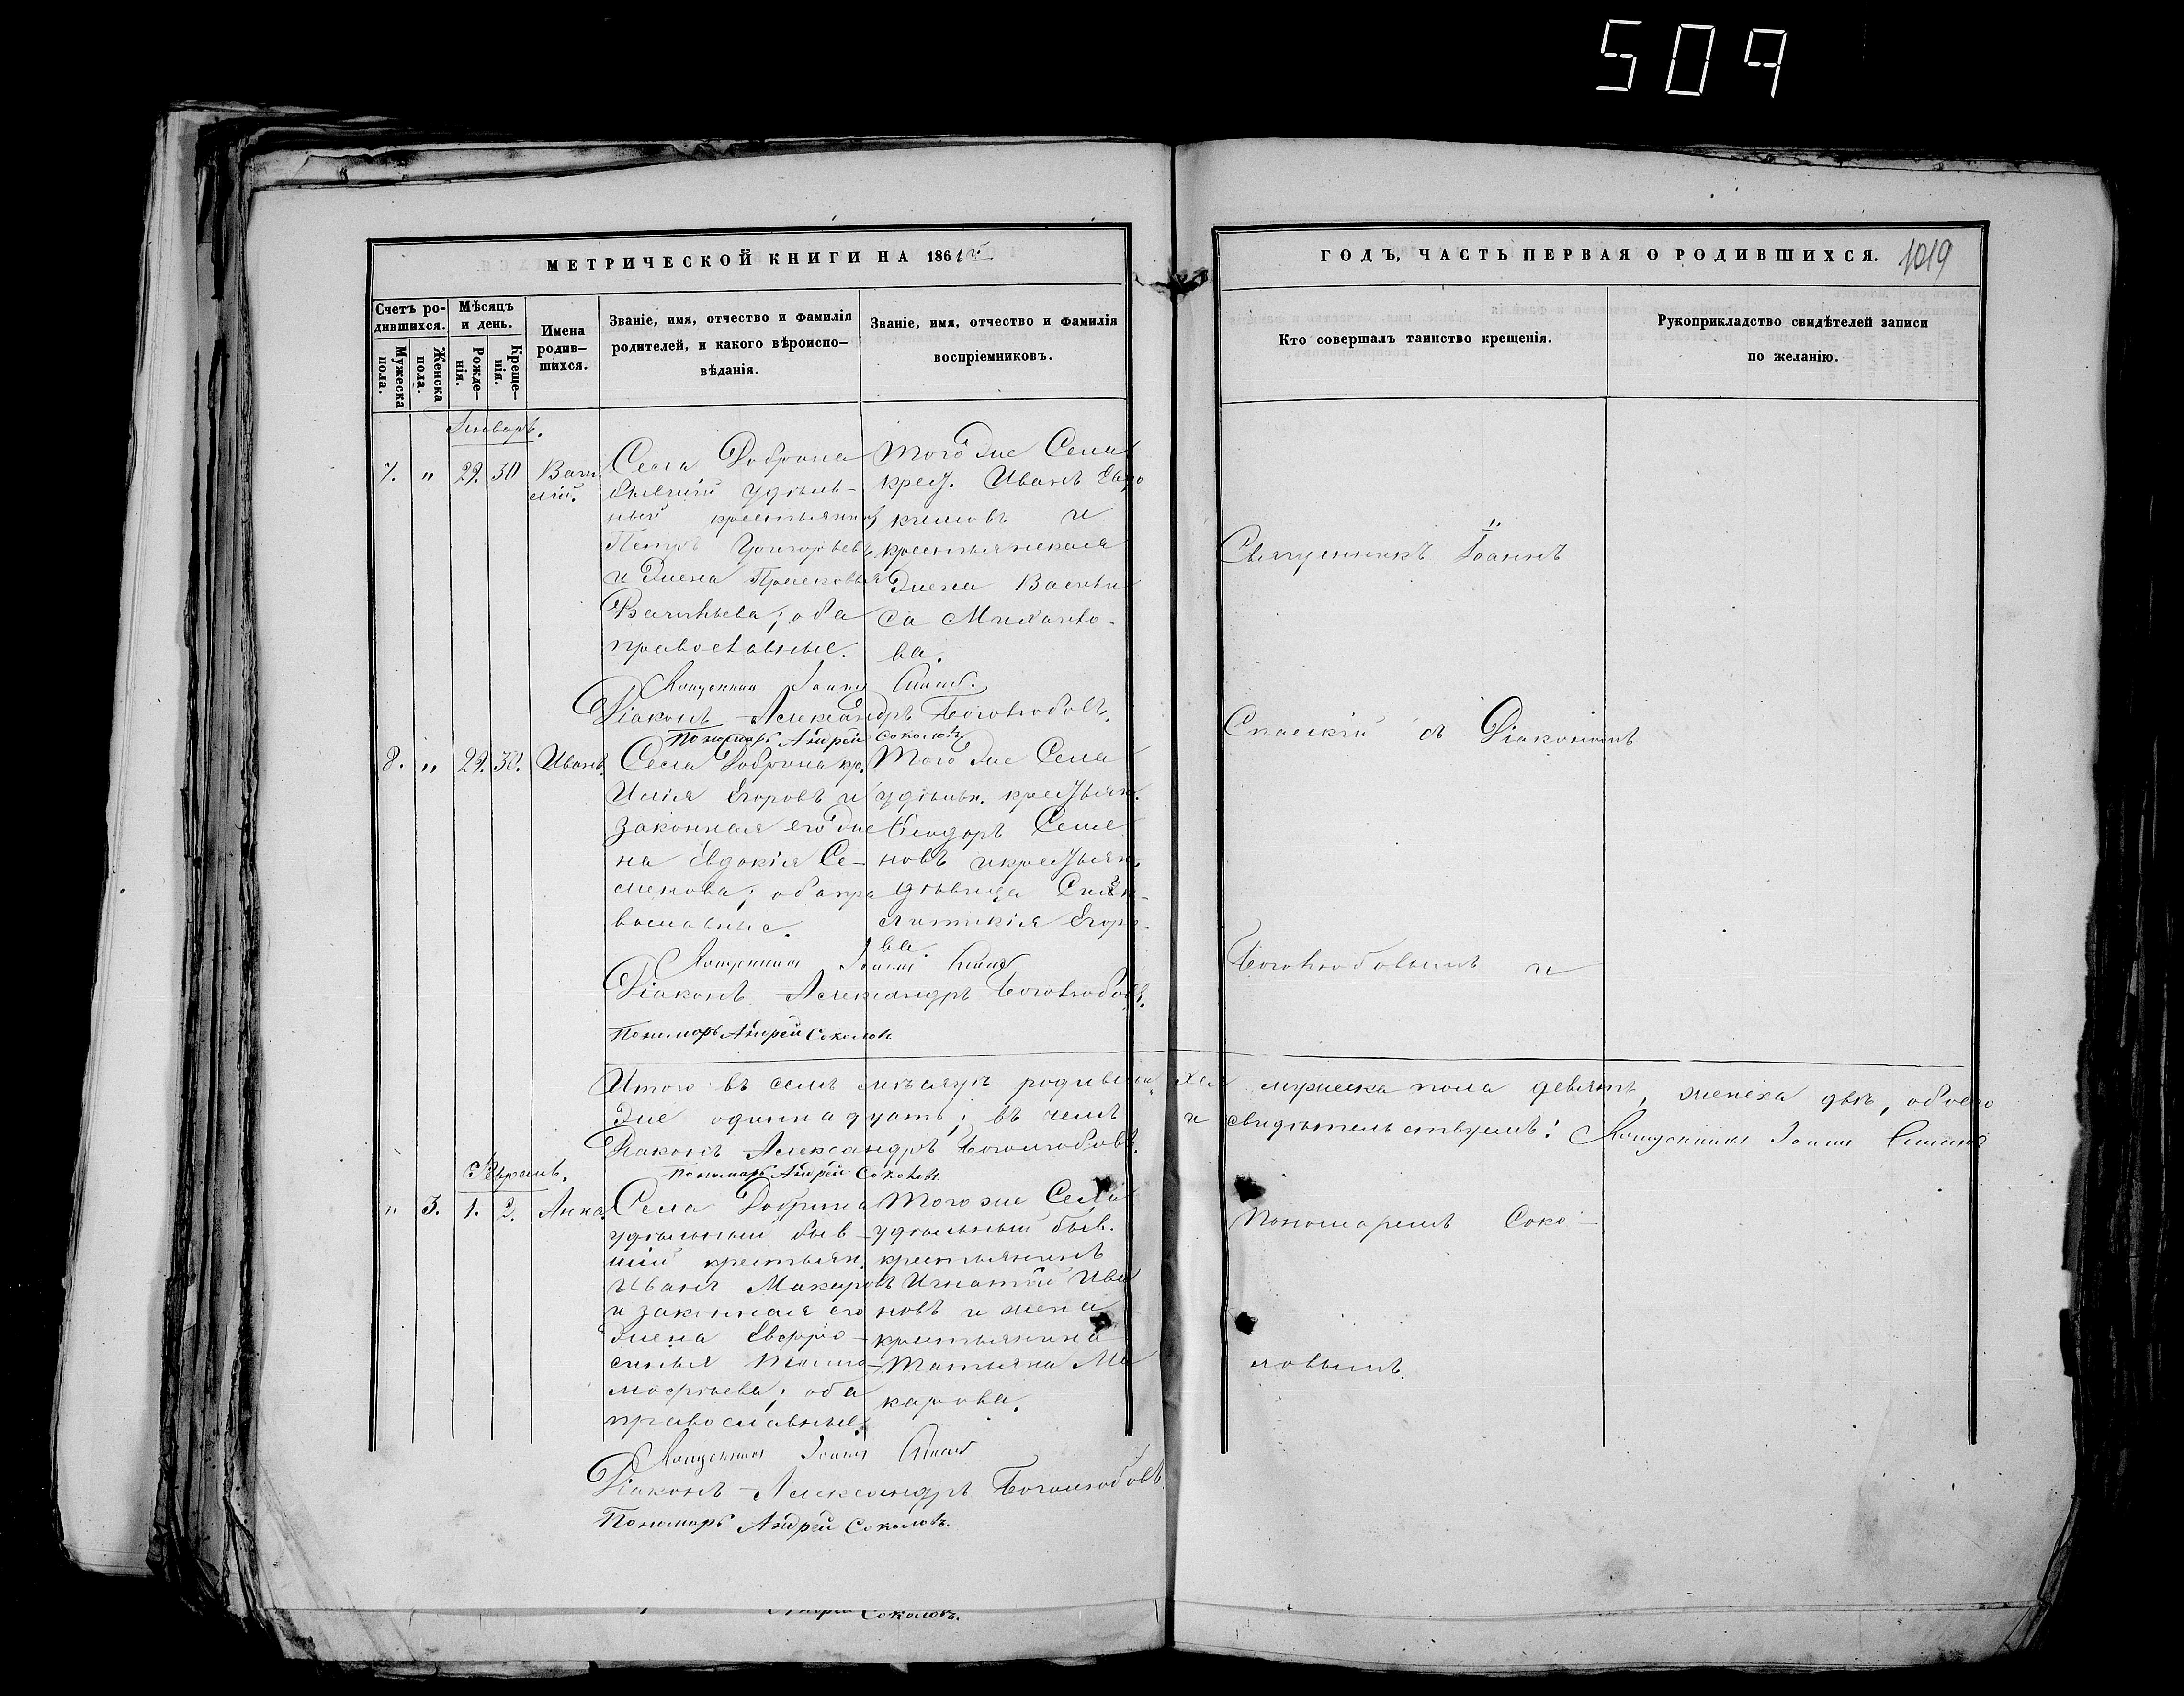 509
МЕТРИЧЕСКОЙ КНИГИ НА 186
ГОДЪ, ЧАСТЬ ПЕРВАЯ О РОДИВШИХСЯ.
1019
Счетъ ро-
дившихся.
Мужеска
пола.
Женска
пола.
Мѣсяцъ
и день.
Рожде-
нія.
Креще-
нія.
Имена
родив-
шихся.
Званіе, имя, отчество и фамилія
родителей, и какого вѣроиспо-
вѣданія.
Званіе, имя, отчество и фамилія
воспріемниковъ.
Кто совершалъ таинство крещенія.
Рукоприкладство свидѣтелей записи
по желанію.
Январь.
7. " 29. 30 Васи
лій.
Села Добрина
бывшій удѣль-
ный крестьянинъ
Петръ Григорьевъ
и жена Прасковья
Васильева; оба
православные.
Того же Села
крест. Иванъ Евдо
кимовъ и
крестьянская
жена Васили
са Михайло-
ва.
Священникъ Іоаннъ Спасск.
Діаконъ Александръ Боголюбовъ.
Пономарь Андрей Соколовъ
8. " 29. 30. Иванъ.
Села Добрина кр.
Илія Егоровъ и
законная его же
на Евдокія Се-
менова; оба пра
вославные.
Того же Села
удѣльн. крестьян.
Ѳеодоръ Семе
новъ и крестьян.
дѣвица Син-
клитикія Егоро-
ва.
Священникъ Іоаннъ Спасск
Діаконъ Александръ Боголюбовъ.
Пономарь Андрей Соколовъ
Итого въ семъ мѣсяцѣ родивши хся мужеска пола девять, женска двѣ, обоего
же одиннадцать; въ чемъ и свидѣтельствуемъ: Священникъ Іоаннъ Спасск
Діаконъ Александръ Боголюбовъ.
Пономарь Андрей Соколовъ
Февраль.
" 3. 1. 2. Анна.
Села Добрина
удѣльный быв-
шій крестьян.
Иванъ Макаровъ
и законная его
жена Евфро-
синья Тимо-
моѳѣева; оба
православные.
Того же Села
удѣльный быв.
крестьянинъ
Игнатій Ива
новъ и жена
крестьянина
Татьяна Ма
карова.
Священникъ Іоаннъ Спасск
Діаконъ Александръ Боголюбовъ.
Пономарь Андрей Соколовъ.
Священникъ Іоаннъ
Спасскій съ Діакономъ
Боголюбовымъ и
Пономаремъ Соко-
ловымъ.
Андрей Соколовъ.